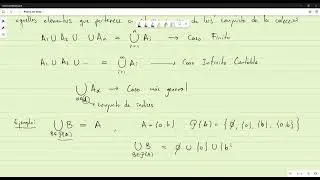 aquellos elementos que pertenece
conjunto de la colecció
A₁ ∪ A₂ ∪ ... ∪ Aₙ = ⋃ᵢ₌₁ⁿ Aᵢ → Caso Finito
A₁ ∪ A₂ ∪ ... = ⋃ᵢ₌₁^∞ Aᵢ → Caso Infinito Contable
⋃ A_α → Caso más general
conjunto de índices
Ejemplo: ⋃_{B∈𝒫(A)} B = A , A = {a,b} , 𝒫(A) = {∅, {a}, {b}, {a,b}}
⋃_{B∈𝒫(A)} B = ∅ ∪ {a} ∪ {b